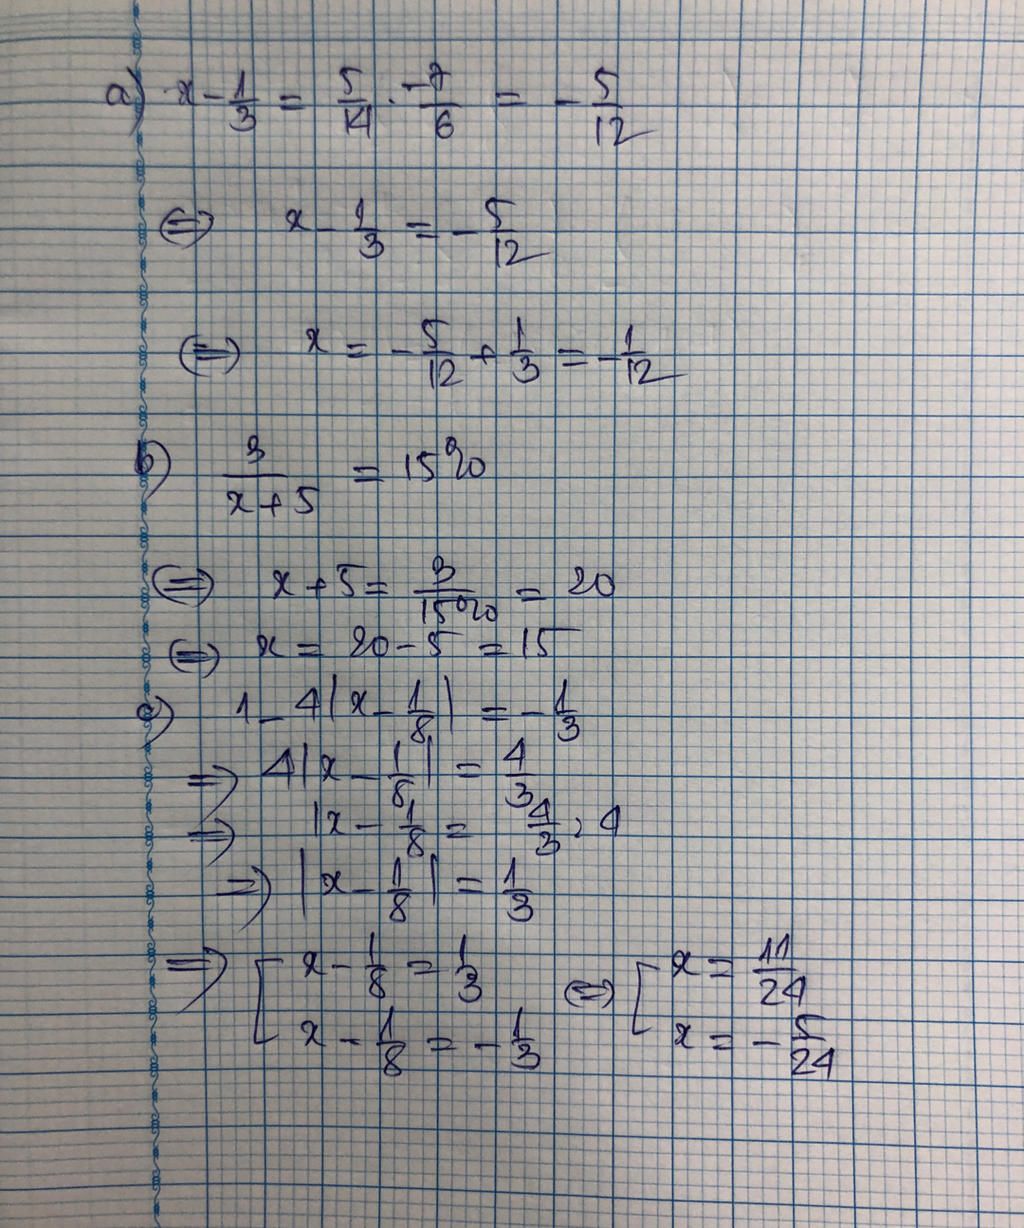 a) x - 1/3 = 5/14 . -7/6 = - 5/12
⇔ x - 1/3 = - 5/12
⇔ x = - 5/12 + 1/3 = - 1/12
b) 3/(x+5) = 15%
⇔ x + 5 = 3/15% = 20
⇔ x = 20 - 5 = 15
c) 1 - 4|x - 1/8| = - 1/3
⇒ 4|x - 1/8| = 4/3
⇒ |x - 1/8 = 4/3 : 4
⇒ |x - 1/8| = 1/3
⇒ [ x - 1/8 = 1/3 ⇔ [ x = 11/24
x - 1/8 = - 1/3 x = - 5/24